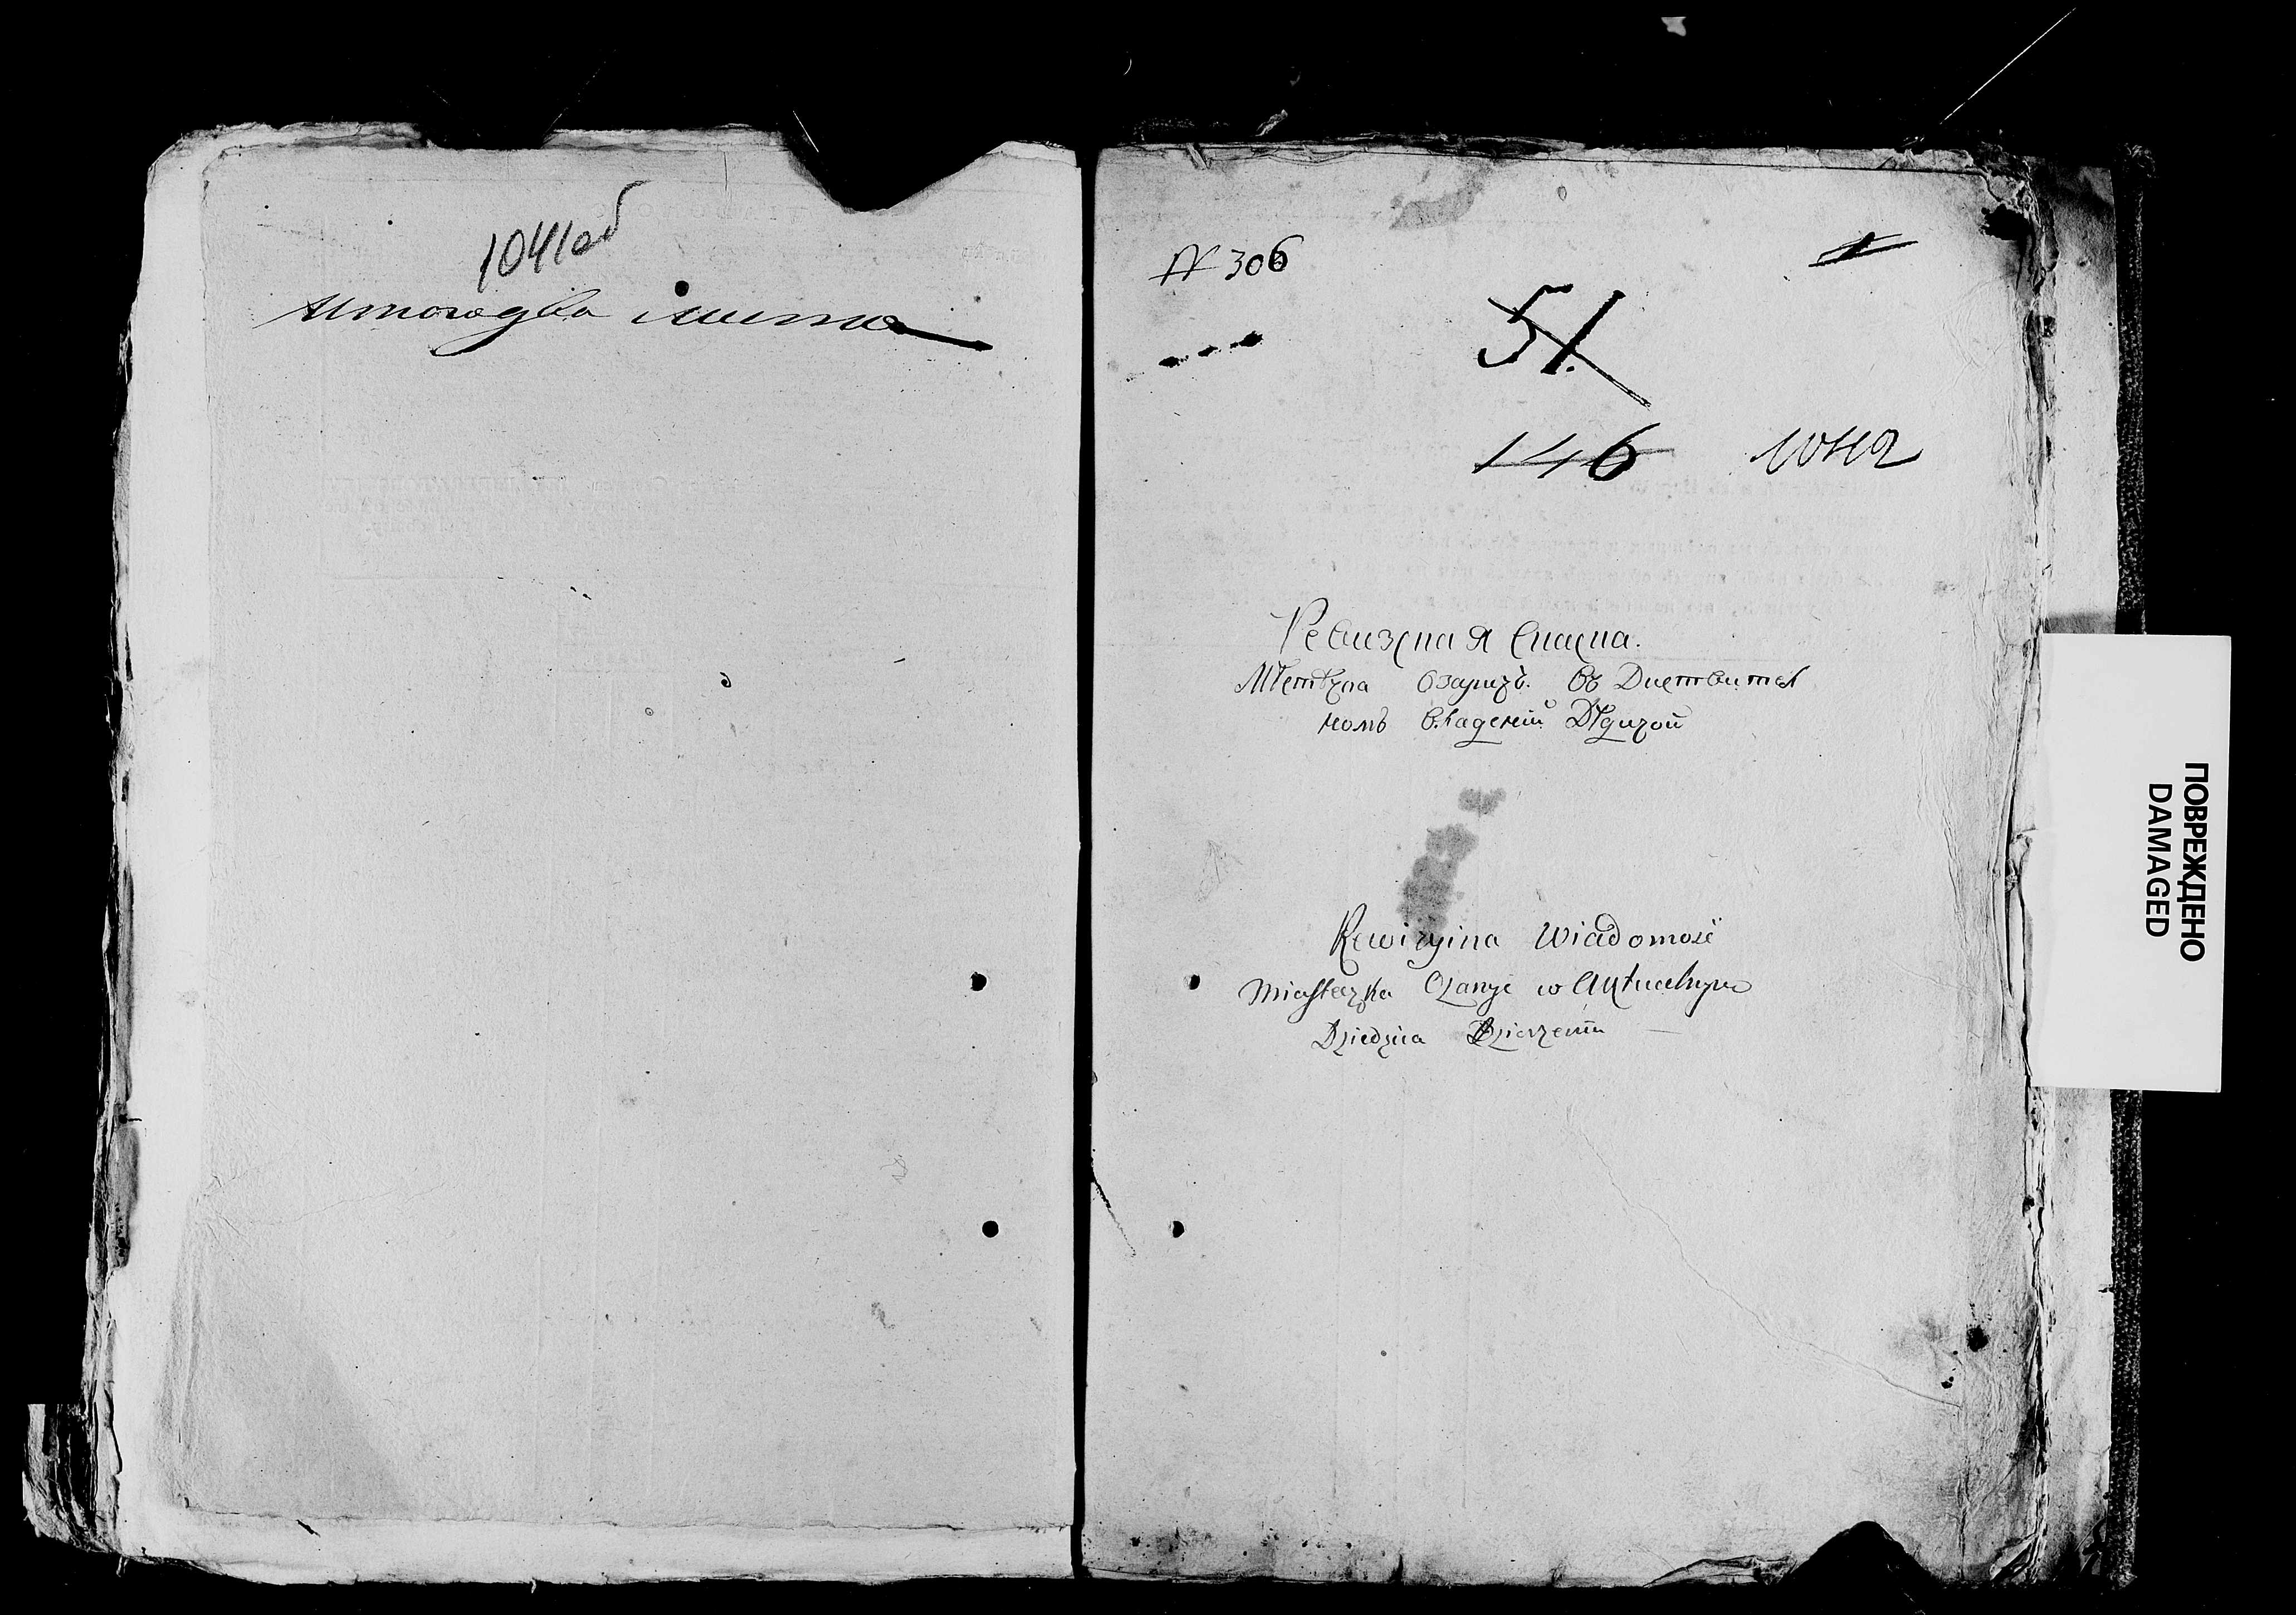 1041об
Итого два листа
N 306
1
51.
146 1042
Ревизская Сказка.
Мѣстѣчка Озариг. Въ Диствител
номъ владенiи Дѣдизой
Rewizyina Wiadomość
Miasteczka Ozaryc w Aktualnym
Dziedzica Dzierżeniu
ПОВРЕЖДЕНО
DAMAGED